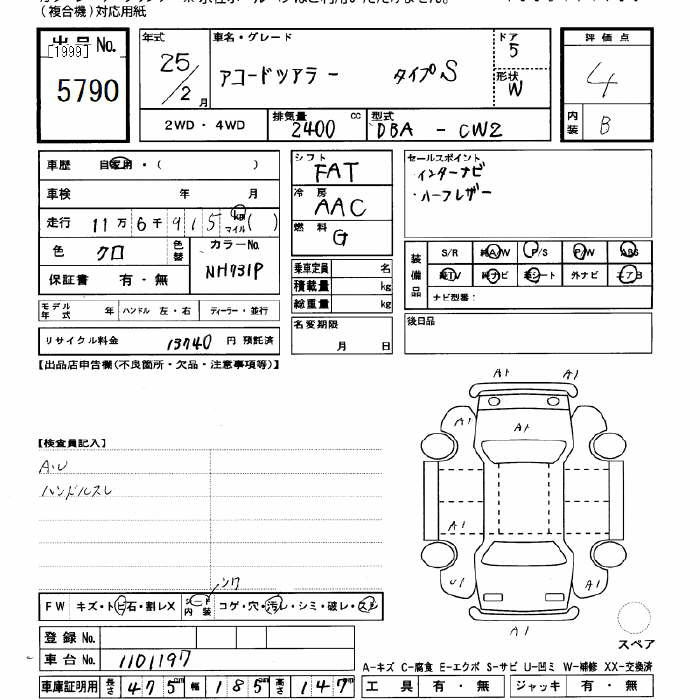 (複合機)対応用紙
出品 No.
[1999]
5790
年式 25/2月
車名・グレード
アコードツアラー タイプS
ドア 5
形状 W
評価点 4
内装 B
2WD・4WD
排気量 2400 cc
型式 DBA - CW2
車歴 自家用・( )
車検 年 月
走行 11万6千915 km マイル ( )
色 クロ 色替
カラーNo. NH731P
保証書 有・無
モデル年式 年 ハンドル 左・右 ディーラー・並行
リサイクル料金 13740 円 預託済
シフト FAT
冷房 AAC
燃料 G
乗車定員 名
積載量 kg
総重量 kg
名変期限 月 日
セールスポイント
・インターナビ
・ハーフレザー
装備品
S/R 純A/W P/S P/W ABS
純TV 純ナビ 革シート 外ナビ エアB
ナビ型番:
後日品
【出品店申告欄(不良箇所・欠品・注意事項等)】
【検査員記入】
A.U
ハンドルスレ
A1 A1
A1 A1 A1
A1
U1 A1
A1
スペア
シワ
FW キズ・トビ石・割レX シート内装 コゲ・穴・汚レ・シミ・破レ・スレ
登録 No.
車台 No. 1101197
A-キズ C-腐食 E-エクボ S-サビ U-凹ミ W-補修 XX-交換済
車庫証明用 長さ 475cm 幅 185cm 高さ 147cm
工具 有・無 ジャッキ 有・無